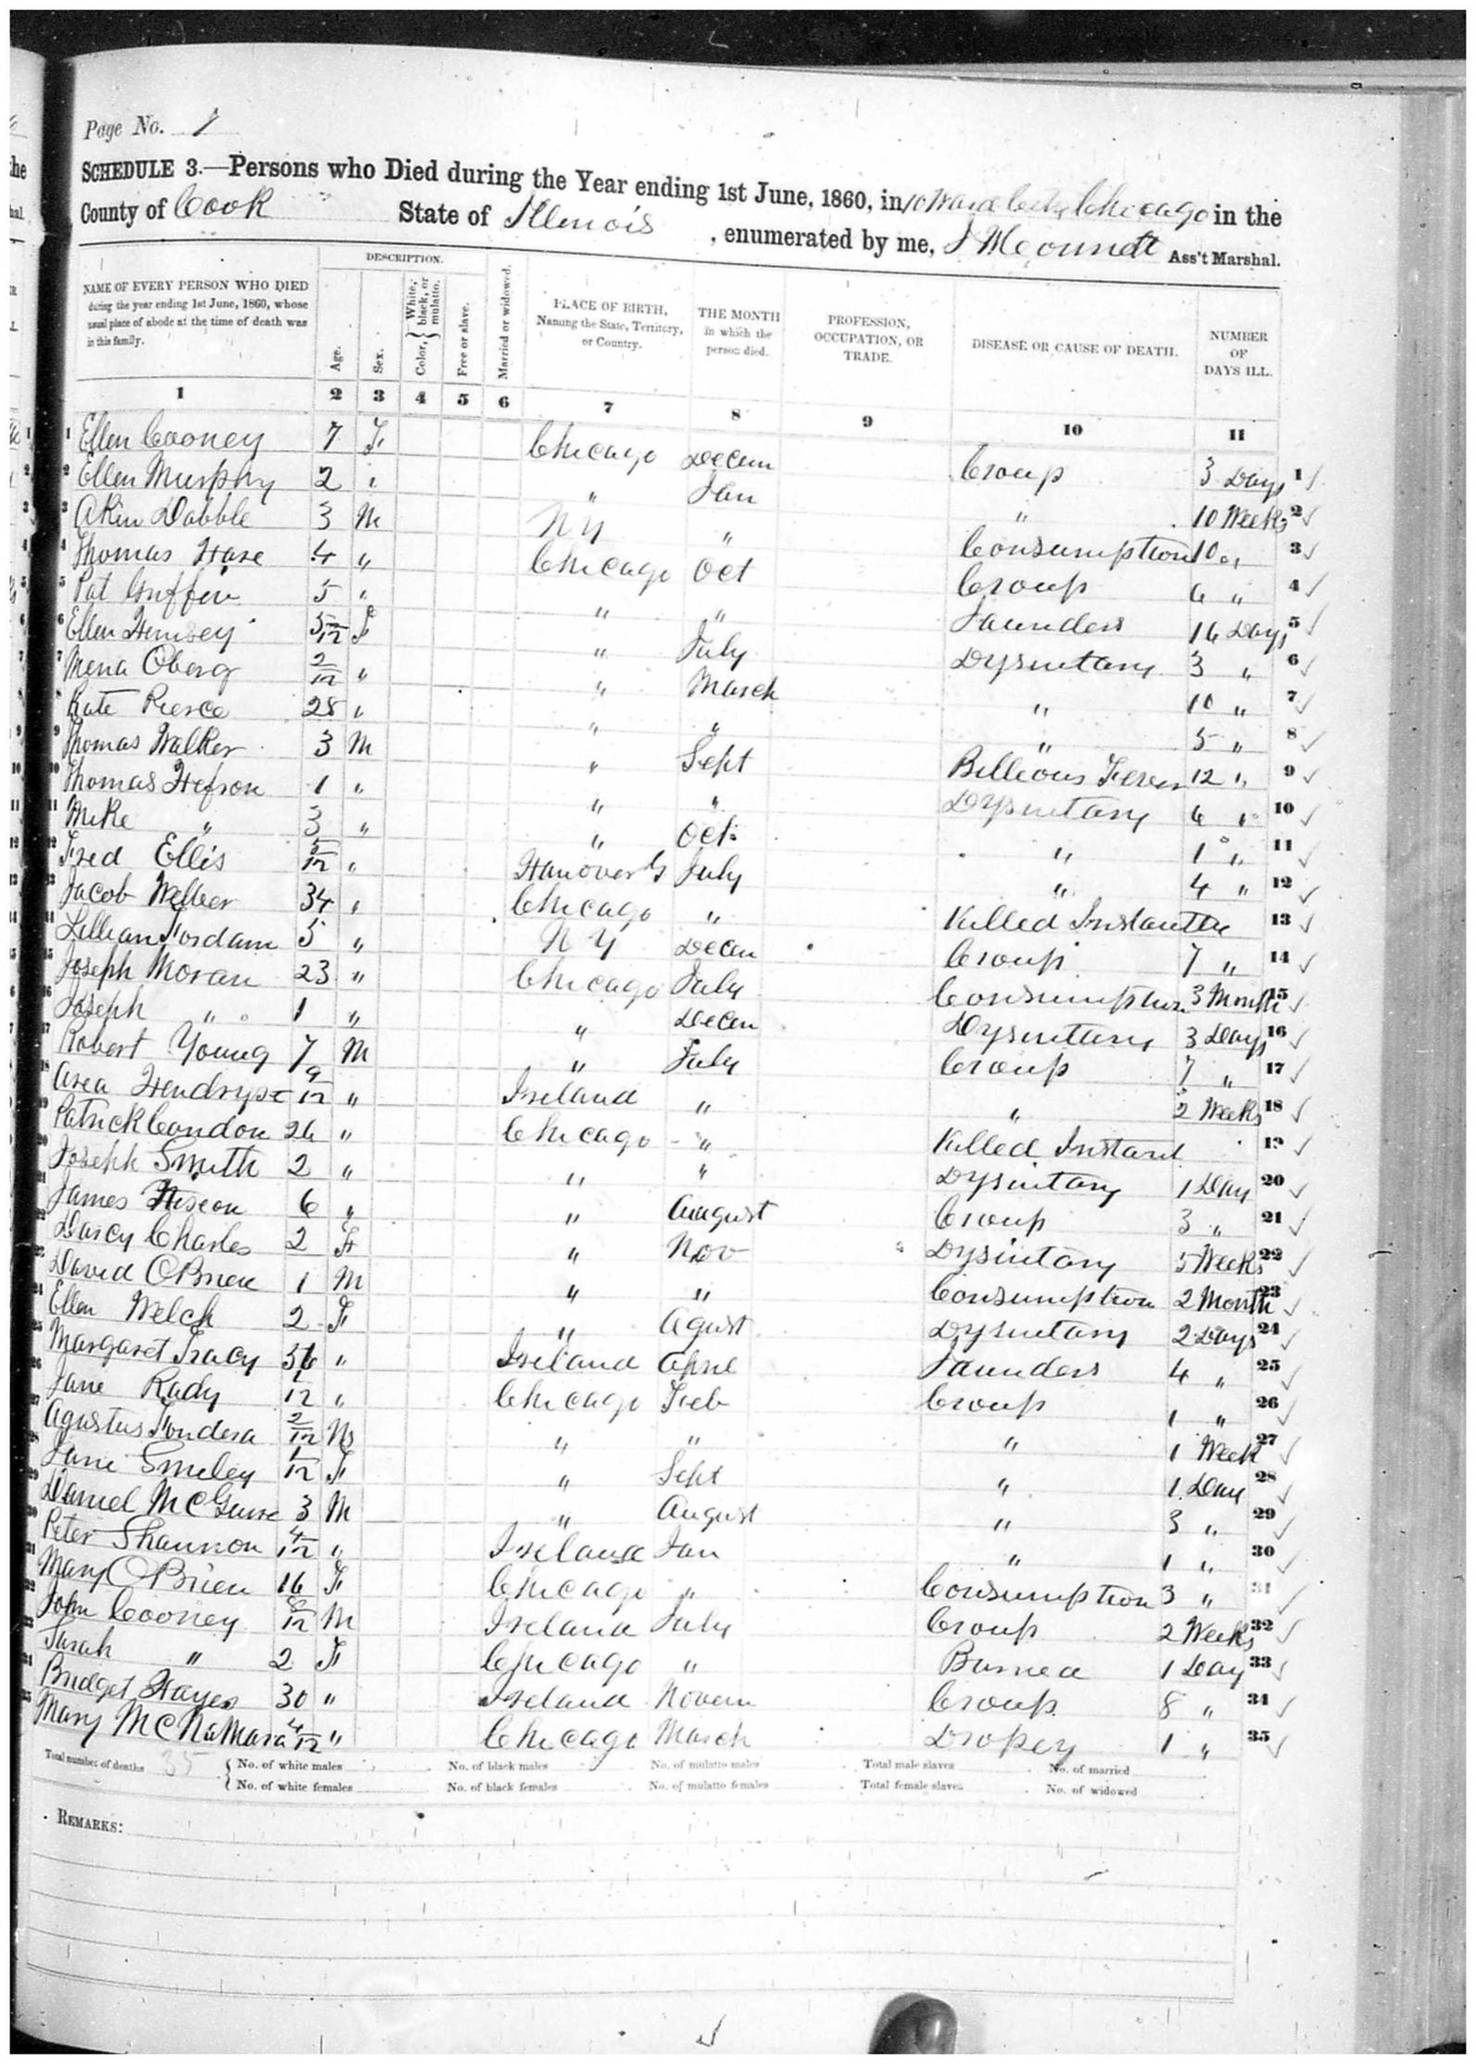 Page No. 1
SCHEDULE 3.—Persons who Died during the Year ending 1st June, 1860, in 10 Ward City Chicago in the
County of Cook State of Illinois, enumerated by me, Ass't Marshal.
DESCRIPTION.
NAME OF EVERY PERSON WHO DIED during the year ending 1st June, 1860, whose usual place of abode at the time of death was in this family.
Age.
Sex.
Color, { White, black, or mulatto.
Free or slave.
Married or widowed.
PLACE OF BIRTH, Naming the State, Territory, or Country.
THE MONTH in which the person died.
PROFESSION, OCCUPATION, OR TRADE.
DISEASE OR CAUSE OF DEATH.
NUMBER OF DAYS ILL.
1 2 3 4 5 6 7 8 9 10 11
1 Ellen Cooney 7 F Chicago Decem Croup 3 Days 1
2 Ellen Murphy 2 " " Jan " 10 Weeks 2
3 Akin Dabble 3 M N Y " Consumption 10 " 3
4 Thomas Hare 4 " Chicago Oct Croup 6 " 4
5 Pat Griffin 5 " " " Jaunders 14 Days 5
6 Ellen Hemsey 5/12 F " July Dysintary 3 " 6
7 Mena Oberg 2/12 " " March " 10 " 7
8 Kate Pierce 28 " " " " 5 " 8
9 Thomas Walker 3 M " Sept Billeous Fever 12 " 9
10 Thomas Hefron 1 " " " Dysintary 6 " 10
11 Mike " 3 " " Oct " 1 " 11
12 Fred Ellis 5/12 " Hanover G July " 4 " 12
13 Jacob Welber 34 " Chicago " Killed Instantly 13
14 Lillian Fordam 5 " N Y Decem Croup 7 " 14
15 Joseph Moran 23 " Chicago July Consumption 3 Month 15
16 Joseph " 1 " " Decem Dysintary 3 Days 16
17 Robert Young 7 M " July Croup 7 " 17
18 Asea Hendryx 9/12 " Ireland " " 2 Weeks 18
19 Patrick Condon 26 " Chicago " Killed Instant 19
20 Joseph Smith 2 " " " Dysintary 1 Day 20
21 James 6 " " August Croup 3 " 21
22 Darcy Charles 2 F " Nov Dysintary 5 Weeks 22
23 David OBrien 1 M " " Consumption 2 Month 23
24 Ellen Welch 2 F " Agust Dysintary 2 Days 24
25 Margaret Tracy 36 " Ireland April Jaunders 4 " 25
26 Jane Rady 1/12 " Chicago Feb Croup 1 " 26
27 Agustus Fondera 2/12 M " " " 1 Week 27
28 Jane Smiley 1/12 F " Sept " 1 Day 28
29 Daniel McGuire 3 M " August " 3 " 29
30 Peter Shannon 4/12 " Ireland Jan " 1 " 30
31 Mary OBrien 16 F Chicago " Consumption 3 " 31
32 John Cooney 8/12 M Ireland July Croup 2 Weeks 32
33 Sarah " 2 F Chicago " Burned 1 Day 33
34 Bridget Hayes 30 " Ireland Novem Croup 8 " 34
35 Mary McNaMara 4/12 " Chicago March Dropcy 1 " 35
Total number of deaths 35 { No. of white males No. of black males No. of mulatto males Total male slaves No. of married
{ No. of white females No. of black females No. of mulatto females Total female slaves No. of widowed
REMARKS: